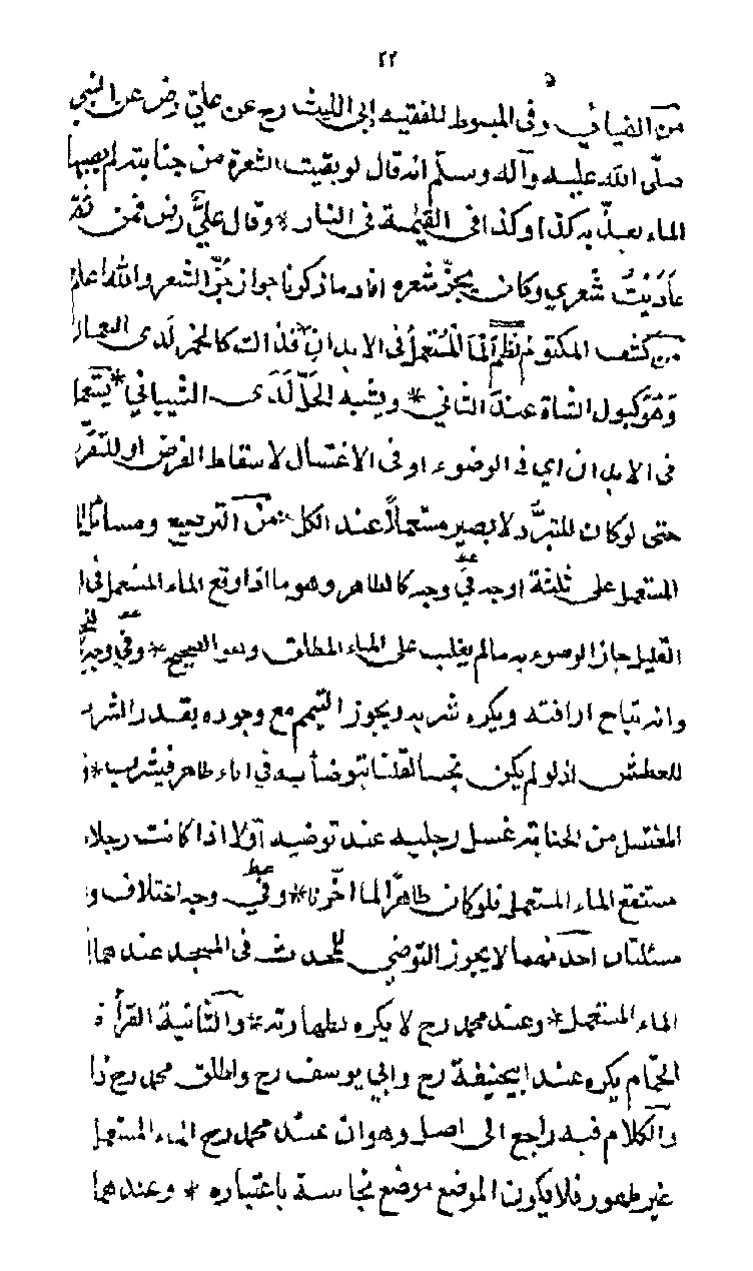 ٢٢
من الفيافي وفى المبسوط للفقيه إبى الليث رح عن عليّ رض عن النبي
صلّى الله عليه وآله وسلّم انه قال لو بقيت الشعرة من جنابته لم يصبها
الماء يعذّب به كذا وكذا فى القيٰمة فى النار * وقال عليّ رض فمن ثمّ
عَادَيْتُ شعري وكان يجزّ شعره افاد ما ذكرنا جواز جزّ الشعر والله اعلم
من كشف المكتوم نظم الما المُستعملُ فى الابدانِ * فذاك كالخمر لَدى النعمان
وهْوَ كبول الشاة عندَ الثاني * ويشبه الخَلّ لَدَى الشيباني * يستعمل
فى الابدان اي فى الوضوء او فى الاغتسال لاسقاط الفرض او للتقرّب
حتى لو كان للتبرّد لا يصير مستعملاً عند الكل * من الترجيع ومسائل
المستعمل على ثلثة اوجه فيّ وجه كالطاهر وهو ما اذا وقع الماء المستعمل فى
القليل جاز الوضوء به مالم يغلب على الماء المطلق وهو الصحيح * وفيّ وجه
وانه تباح اراقته ويكره شربه ويجوز التيمم مع وجوده بقدر الشرب
للعطش اذ لو لم يكن نجسا لقلنا يتوضأ به فى اناء طاهر فيشرب *
المغتسل من الجنابة غسل رجليه عند توضيه آوّلا اذا كانت رجلاه
مستنقع الماء المستعمل فلو كان طاهرًا لما اخّرنا * وفيّ وجه اختلاف و
مسئلتان احدٰهما لا يجوز التوضي للحدث فى المسجد عندهما
الماء المستعمل * وعند محمد رح لا يكره لطهارته * والثانية القرأة
الحمّام يكره عند ابيحنيفة رح وابي يوسف رح واطلق محمد رح
والكلام فيه راجع الى اصل وهو ان عند محمد رح الماء المستعمل
غير طهور فلا يكون الموضع موضع نجاسة باعتباره * وعندهما